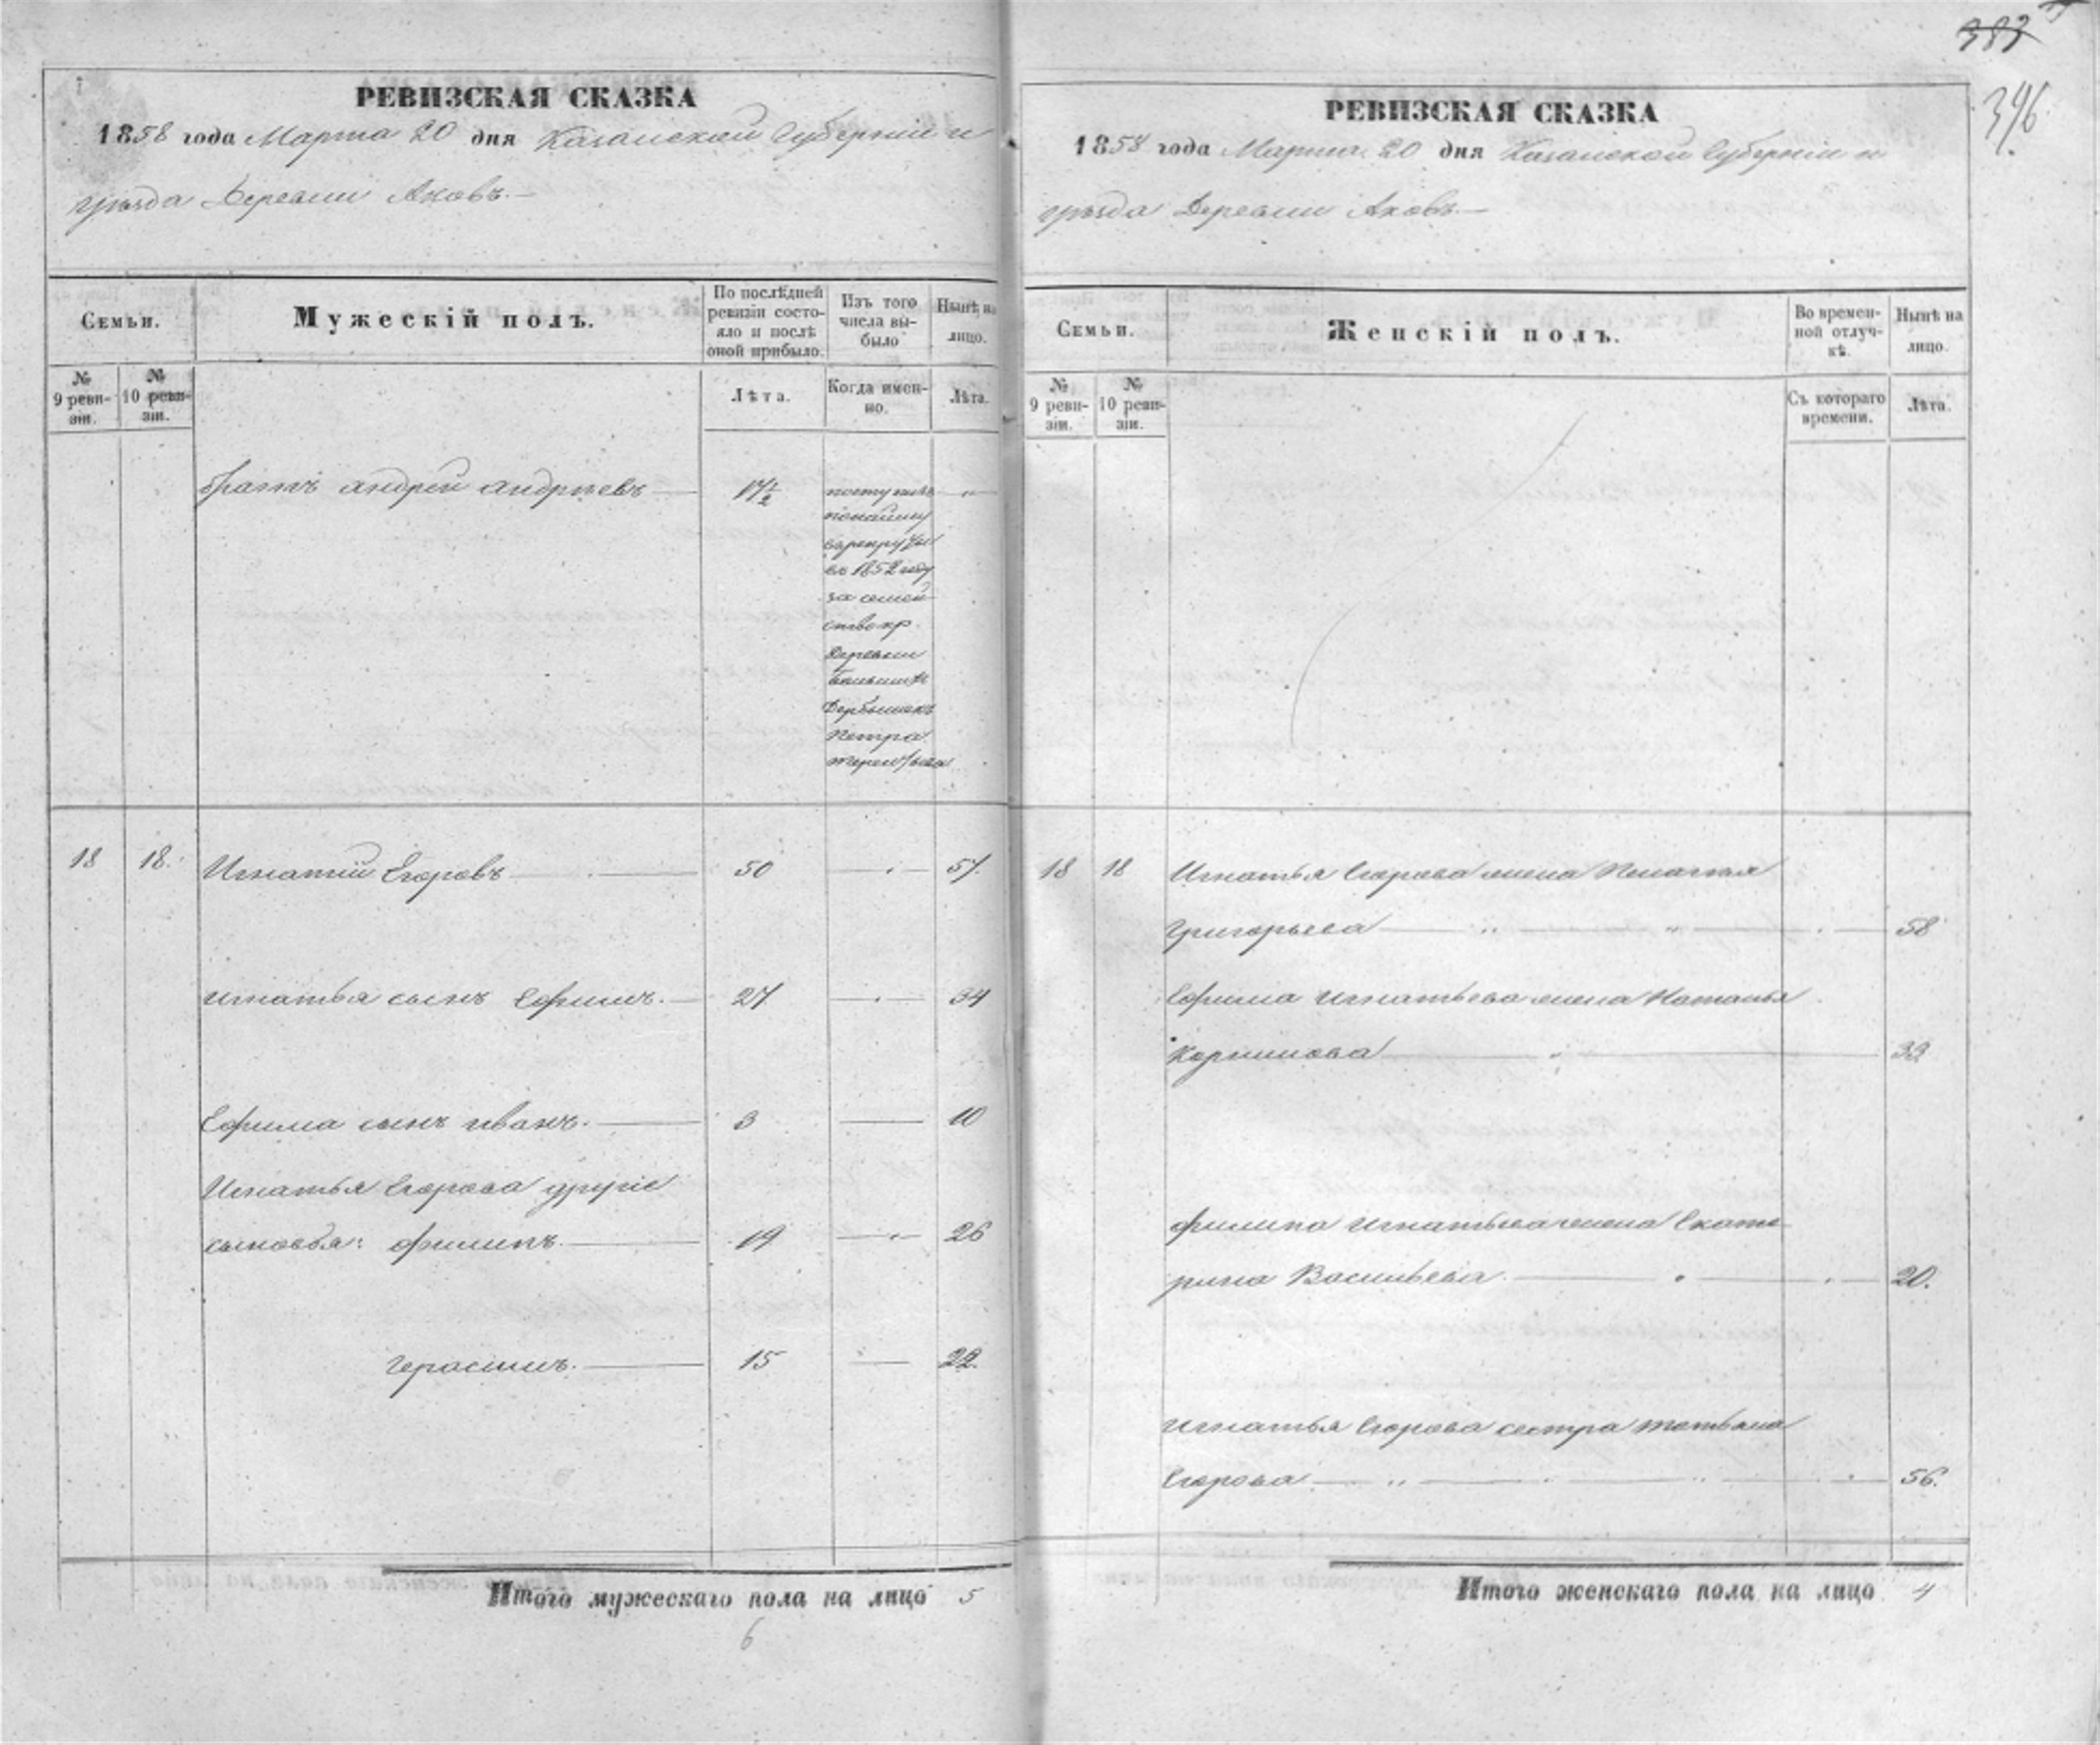 383
396.
РЕВИЗСКАЯ СКАЗКА
1858 года Марта 20 дня Казанской Губерніи и
уѣзда Деревни Аковъ.—
Семьи.
Мужескій полъ.
По послѣдней ревизіи состояло и послѣ оной прибыло.
Изъ того числа выбыло
Нынѣ на лицо.
№ 9 ревизіи.
№ 10 ревизіи.
Лѣта.
Когда именно.
Лѣта.
братъ андрей андреевъ — 17½ „
поступилъ
по найму
въ рекруты
въ 1852 году
за семей
ство кр.
деревни
Дербышекъ
Петра
18 18. Игнатій Егоровъ — 50 — 57.
Игнатья сынъ Ефимъ. — 27 — 34
Ефима сынъ иванъ. — 3 — 10
Игнатья Егорова другіе
сыновья: филипъ. — 19 — 26
герасимъ. — 15 — 22.
Итого мужескаго пола на лицо 5
6
РЕВИЗСКАЯ СКАЗКА
1858 года Марта 20 дня Казанской Губерніи и
уѣзда Деревни Аковъ.—
Семьи.
Женскій полъ.
Во временной отлучкѣ.
Нынѣ на лицо.
№ 9 ревизіи.
№ 10 ревизіи.
Съ котораго времени.
Лѣта.
18 18 Игнатья Егорова жена Пелагея
Григорьева — 58
Ефима Игнатьева жена Наталья
33
филипа Игнатьева жена Екате
рина Васильева. — 20.
Игнатья Егорова сестра татьяна
Егорова — 56.
Итого женскаго пола на лицо 4